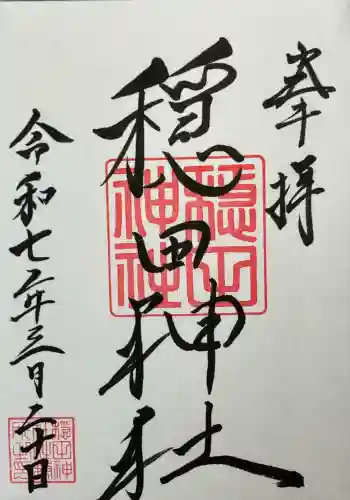 奉拝
穏田神社
穏田神社
令和七年三月二十日